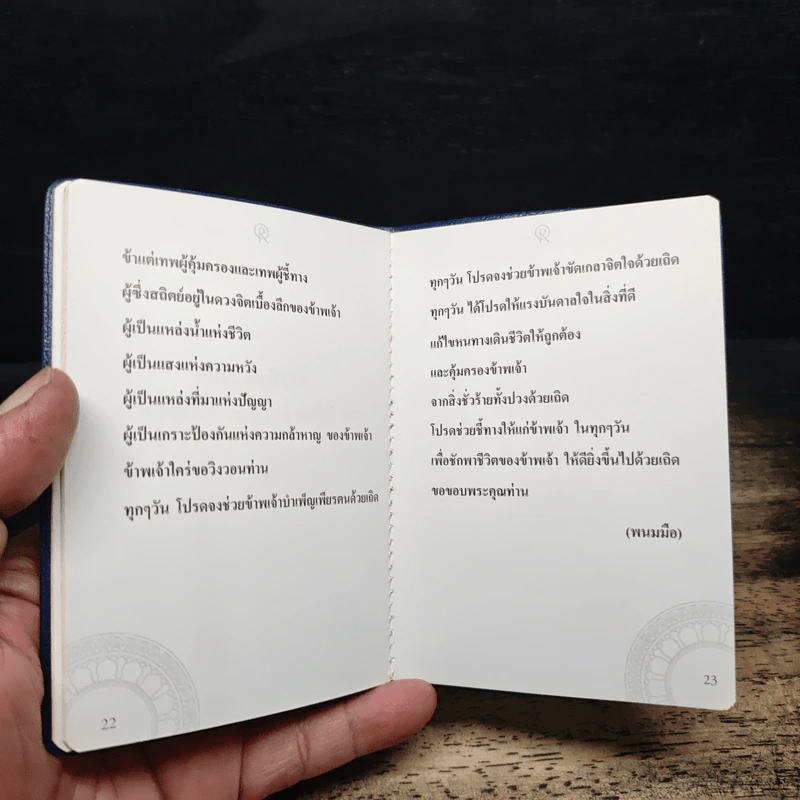 ข้าแต่เทพผู้คุ้มครองและเทพผู้ชี้ทาง
ผู้ซึ่งสถิตย์อยู่ในดวงจิตเบื้องลึกของข้าพเจ้า
ผู้เป็นแหล่งน้ำแห่งชีวิต
ผู้เป็นแสงแห่งความหวัง
ผู้เป็นแหล่งที่มาแห่งปัญญา
ผู้เป็นเกราะป้องกันแห่งความกล้าหาญ ของข้าพเจ้า
ข้าพเจ้าใคร่ขอวิงวอนท่าน
ทุกๆวัน โปรดจงช่วยข้าพเจ้าบำเพ็ญเพียรตนด้วยเถิด
22
ทุกๆวัน โปรดจงช่วยข้าพเจ้าขัดเกลาจิตใจด้วยเถิด
ทุกๆวัน ได้โปรดให้แรงบันดาลใจในสิ่งที่ดี
แก้ไขหนทางเดินชีวิตให้ถูกต้อง
และคุ้มครองข้าพเจ้า
จากสิ่งชั่วร้ายทั้งปวงด้วยเถิด
โปรดช่วยชี้ทางให้แก่ข้าพเจ้า ในทุกๆวัน
เพื่อชักพาชีวิตของข้าพเจ้า ให้ดียิ่งขึ้นไปด้วยเถิด
ขอขอบพระคุณท่าน
(พนมมือ)
23